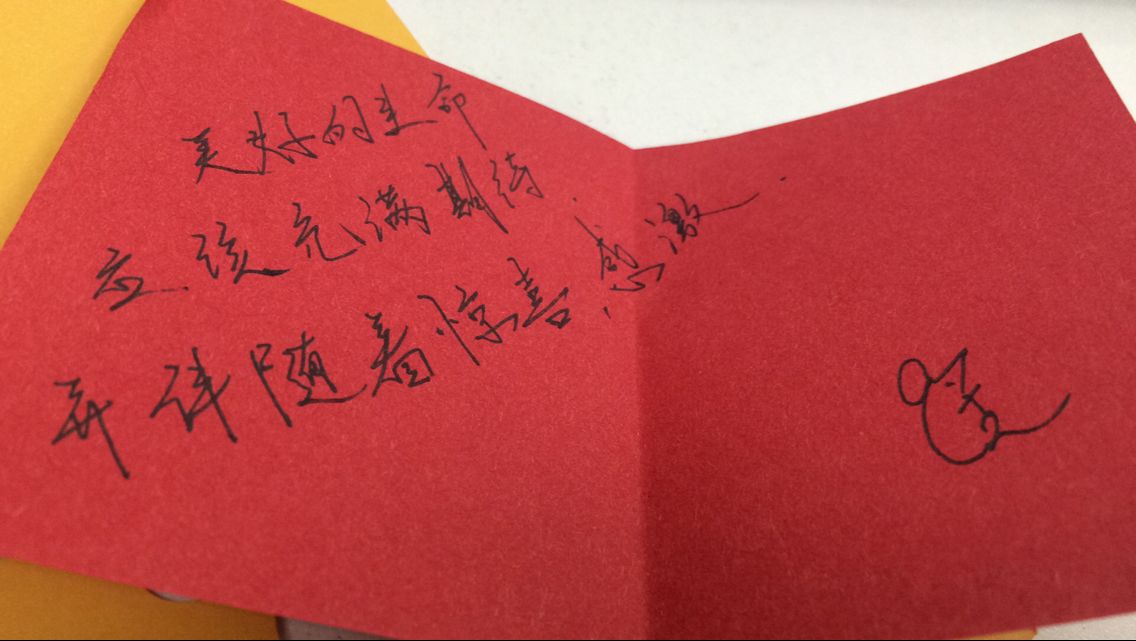 美好的生命
应该充满期待、
并伴随着惊喜、感激.